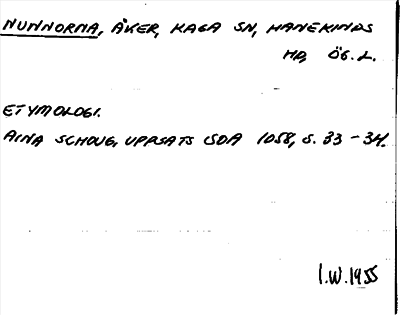 NUNNORNA, ÅKER, KAGA SN, HANEKINDS
HD, ÖG. L.
ETYMOLOGI.
AINA SCHOUG, UPPSATS SOA 1058, S. 33-34.
I.W. 1955